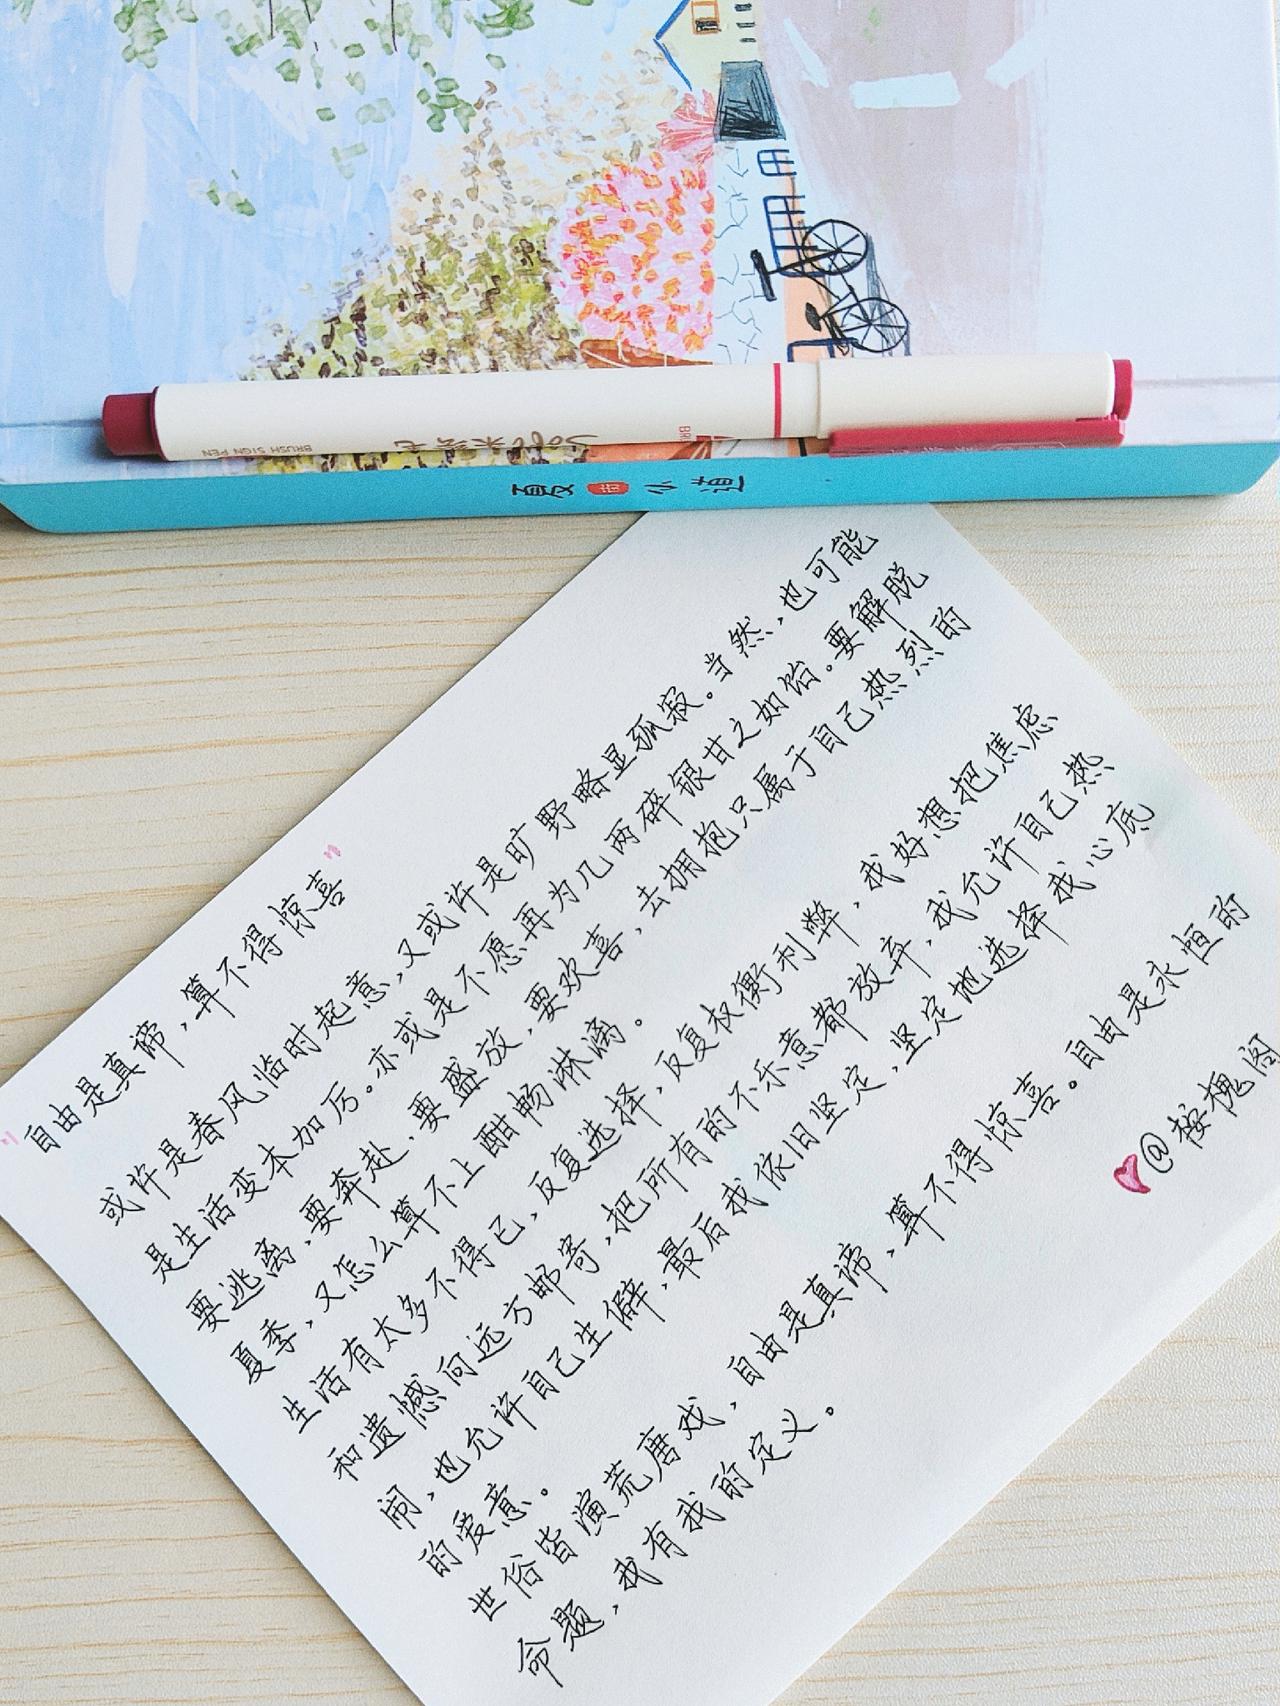 BRUSH SIGN PEN
夏的小道
"自由是真谛，算不得惊喜"
或许是春风临时起意，又或许是旷野略显孤寂。当然，也可能
是生活变本加厉。亦或是不愿再为几两碎银甘之如饴。要解脱
要逃离，要奔赴，要盛放，要欢喜，去拥抱只属于自己热烈的
夏季，又怎么算不上酣畅淋漓。
生活有太多不得已，反复选择，反复权衡利弊，我好想把焦虑
和遗憾向远方邮寄，把所有的不乐意都放弃，我允许自己热
闹，也允许自己生僻，最后我依旧坚定，坚定地选择我心底
的爱意。
世俗皆演荒唐戏，自由是真谛，算不得惊喜。自由是永恒的
命题，我有我的定义。
@桉槐阁